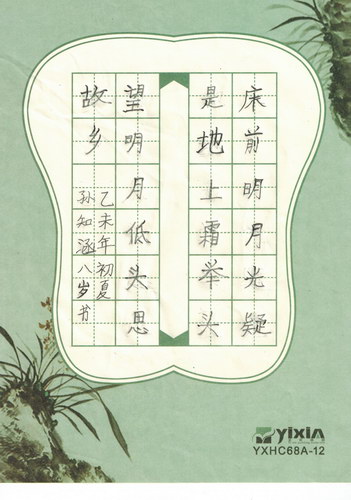 床前明月光疑
是地上霜举头
望明月低头思
故乡
乙未年初夏
孙知涵八岁书
yixiA
YXHC68A-12